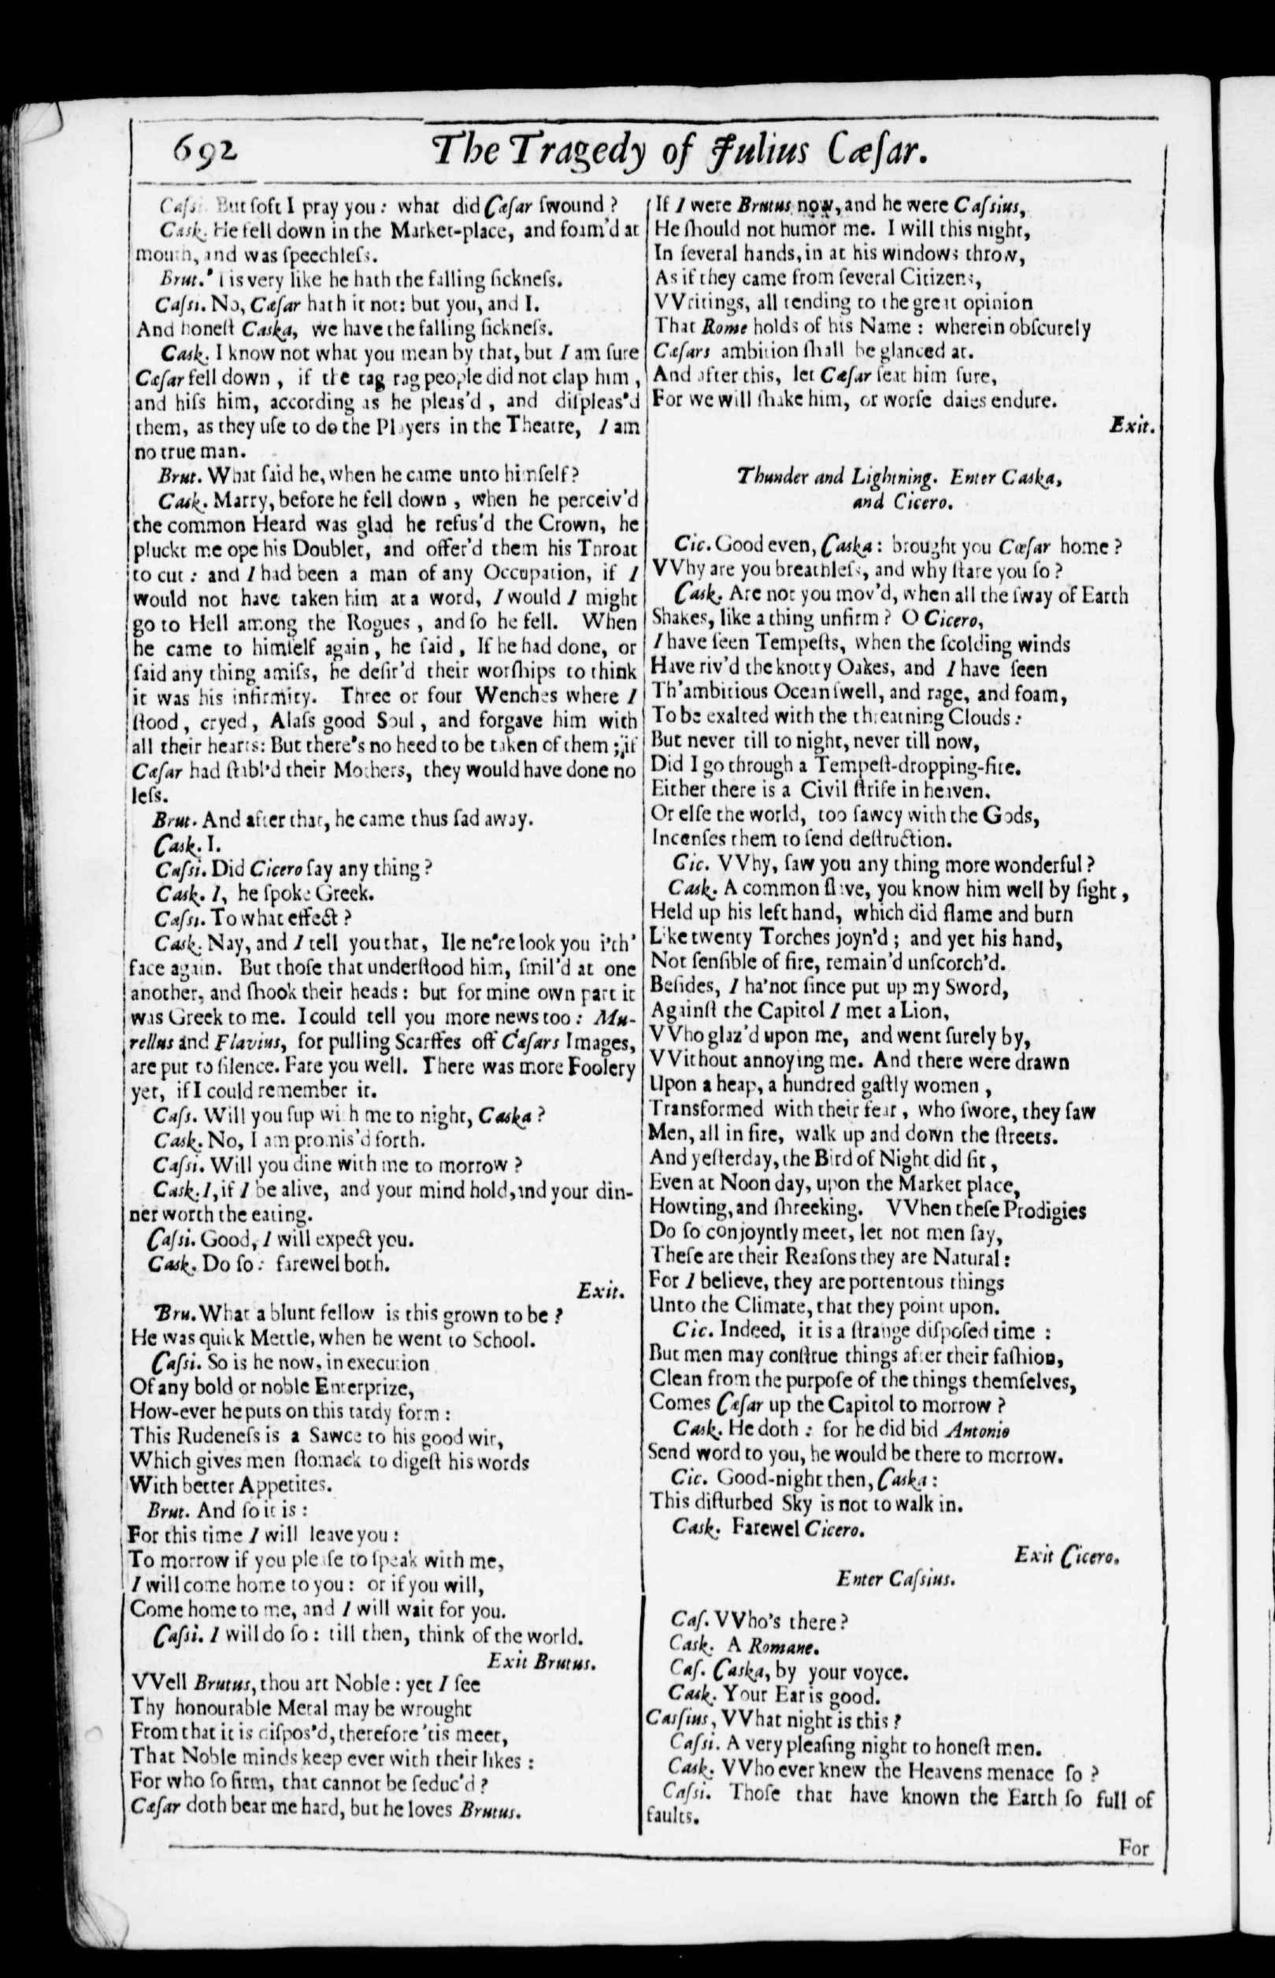 692
The Tragedy of Julius Cæſar.
Caſsi. But ſoft I pray you: what did Cæſar ſwound?
Cask. He fell down in the Market-place, and foam'd at
mouth, and was ſpeechleſs.
Brut. 'Tis very like he hath the falling ſickneſs.
Caſsi. No, Cæſar hath it not: but you, and I.
And honeſt Caska, we have the falling ſickneſs.
Cask. I know not what you mean by that, but I am ſure
Cæſar fell down, if the tag rag people did not clap him,
and hiſs him, according as he pleas'd, and diſpleas'd
them, as they uſe to do the Players in the Theatre, I am
no true man.
Brut. What ſaid he, when he came unto himſelf?
Cask. Marry, before he fell down, when he perceiv'd
the common Heard was glad he refus'd the Crown, he
pluckt me ope his Doublet, and offer'd them his Throat
to cut: and I had been a man of any Occupation, if I
would not have taken him at a word, I would I might
go to Hell among the Rogues, and ſo he fell. When
he came to himſelf again, he ſaid, If he had done, or
ſaid any thing amiſs, he deſir'd their worſhips to think
it was his infirmity. Three or four Wenches where I
ſtood, cryed, Alaſs good Soul, and forgave him with
all their hearts: But there's no heed to be taken of them; if
Cæſar had ſtabl'd their Mothers, they would have done no
leſs.
Brut. And after that, he came thus ſad away.
Cask. I.
Caſsi. Did Cicero ſay any thing?
Cask. I, he ſpoke Greek.
Caſsi. To what effect?
Cask. Nay, and I tell you that, Ile ne're look you i'th'
face again. But thoſe that underſtood him, ſmil'd at one
another, and ſhook their heads: but for mine own part it
was Greek to me. I could tell you more news too: Mu-
rellus and Flavius, for pulling Scarffes off Cæſars Images,
are put to ſilence. Fare you well. There was more Foolery
yet, if I could remember it.
Caſs. Will you ſup with me to night, Caska?
Cask. No, I am promis'd forth.
Caſsi. Will you dine with me to morrow?
Cask. I, if I be alive, and your mind hold, and your din-
ner worth the eating.
Caſsi. Good, I will expect you.
Cask. Do ſo: farewel both.
Exit.
Bru. What a blunt fellow is this grown to be?
He was quick Mettle, when he went to School.
Caſsi. So is he now, in execution
Of any bold or noble Enterprize,
How-ever he puts on this tardy form:
This Rudeneſs is a Sawce to his good wit,
Which gives men ſtomack to digeſt his words
With better Appetites.
Brut. And ſo it is:
For this time I will leave you:
To morrow if you pleaſe to ſpeak with me,
I will come home to you: or if you will,
Come home to me, and I will wait for you.
Caſsi. I will do ſo: till then, think of the world.
Exit Brutus.
VVell Brutus, thou art Noble: yet I ſee
Thy honourable Metal may be wrought
From that it is diſpos'd, therefore 'tis meet,
That Noble minds keep ever with their likes:
For who ſo firm, that cannot be ſeduc'd?
Cæſar doth bear me hard, but he loves Brutus.
If I were Brutus now, and he were Caſsius,
He ſhould not humor me. I will this night,
In ſeveral hands, in at his windows throw,
As if they came from ſeveral Citizens,
VVritings, all tending to the great opinion
That Rome holds of his Name: wherein obſcurely
Cæſars ambition ſhall be glanced at.
And after this, let Cæſar ſeat him ſure,
For we will ſhake him, or worſe daies endure.
Exit.
Thunder and Lightning. Enter Caska,
and Cicero.
Cic. Good even, Caska: brought you Cæſar home?
VVhy are you breathleſs, and why ſtare you ſo?
Cask. Are not you mov'd, when all the ſway of Earth
Shakes, like a thing unfirm? O Cicero,
I have ſeen Tempeſts, when the ſcolding winds
Have riv'd the knotty Oakes, and I have ſeen
Th'ambitious Ocean ſwell, and rage, and foam,
To be exalted with the threatning Clouds:
But never till to night, never till now,
Did I go through a Tempeſt-dropping-fire.
Either there is a Civil ſtrife in heaven,
Or elſe the world, too ſawcy with the Gods,
Incenſes them to ſend deſtruction.
Cic. VVhy, ſaw you any thing more wonderful?
Cask. A common ſlave, you know him well by ſight,
Held up his left hand, which did flame and burn
Like twenty Torches joyn'd; and yet his hand,
Not ſenſible of fire, remain'd unſcorch'd.
Beſides, I ha'not ſince put up my Sword,
Againſt the Capitol I met a Lion,
VVho glaz'd upon me, and went ſurely by,
VVithout annoying me. And there were drawn
Upon a heap, a hundred gaſtly women,
Transformed with their fear, who ſwore, they ſaw
Men, all in fire, walk up and down the ſtreets.
And yeſterday, the Bird of Night did ſit,
Even at Noon day, upon the Market place,
Howting, and ſhreeking. VVhen theſe Prodigies
Do ſo conjoyntly meet, let not men ſay,
Theſe are their Reaſons they are Natural:
For I believe, they are portentous things
Unto the Climate, that they point upon.
Cic. Indeed, it is a ſtrange diſpoſed time:
But men may conſtrue things after their faſhion,
Clean from the purpoſe of the things themſelves,
Comes Cæſar up the Capitol to morrow?
Cask. He doth: for he did bid Antonio
Send word to you, he would be there to morrow.
Cic. Good-night then, Caska:
This diſturbed Sky is not to walk in.
Cask. Farewel Cicero.
Exit Cicero.
Enter Caſsius.
Caſ. VVho's there?
Cask. A Romane.
Caſ. Caska, by your voyce.
Cask. Your Ear is good.
Caſsius, VVhat night is this?
Caſsi. A very pleaſing night to honeſt men.
Cask. VVho ever knew the Heavens menace ſo?
Caſsi. Thoſe that have known the Earth ſo full of
faults.
For